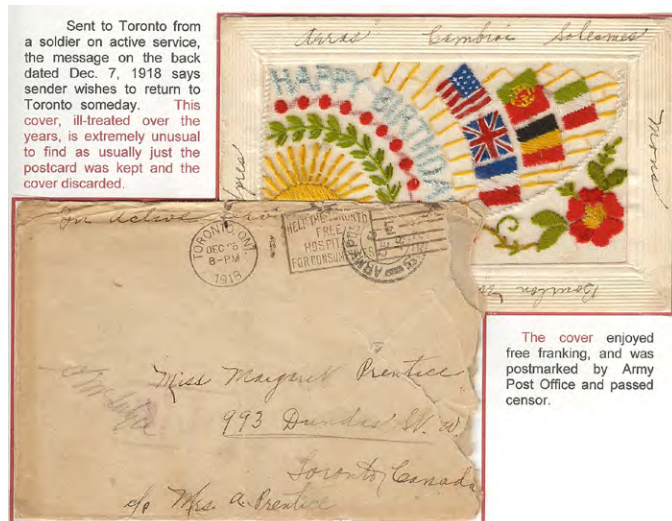 Sent to Toronto from
a soldier on active service,
the message on the back
dated Dec. 7, 1918 says
sender wishes to return to
Toronto someday. This
cover, ill-treated over the
years, is extremely unusual
to find as usually just the
postcard was kept and the
cover discarded.
Arras Cambrai Solesmes
HAPPY BIRTHDA
Mons
Bourlon
On Active
TORONTO, ONT.
DEC 26
8-PM
1918
HELP THE TORONTO
FREE
HOSPIT
FOR CONSUMPTIVES
ARMY PO
Miss Margaret Prentice
993 Dundas St. W.
Toronto, Canada
c/o Mrs. A. Prentice
The cover enjoyed
free franking, and was
postmarked by Army
Post Office and passed
censor.